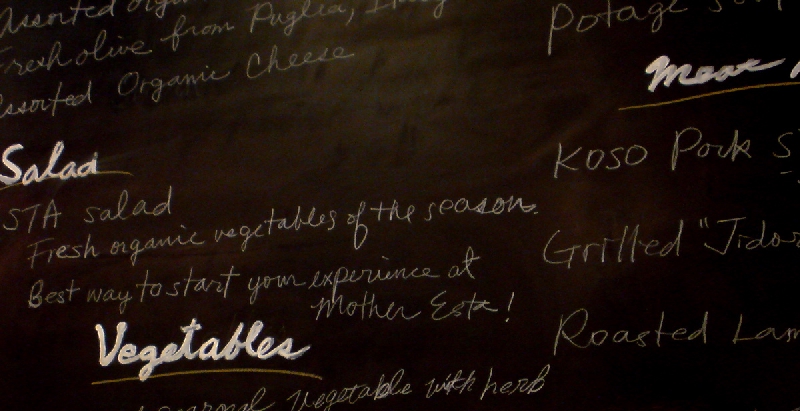 Assorted
Fresh olive from Puglia, Italy
Assorted Organic Cheese
Salad
STA salad
Fresh organic vegetables of the season.
Best way to start your experience at
Mother Esta!
Vegetables
Vegetable with herb
Potage
Meat
Koso Pork
Grilled "Jido
Roasted Lam